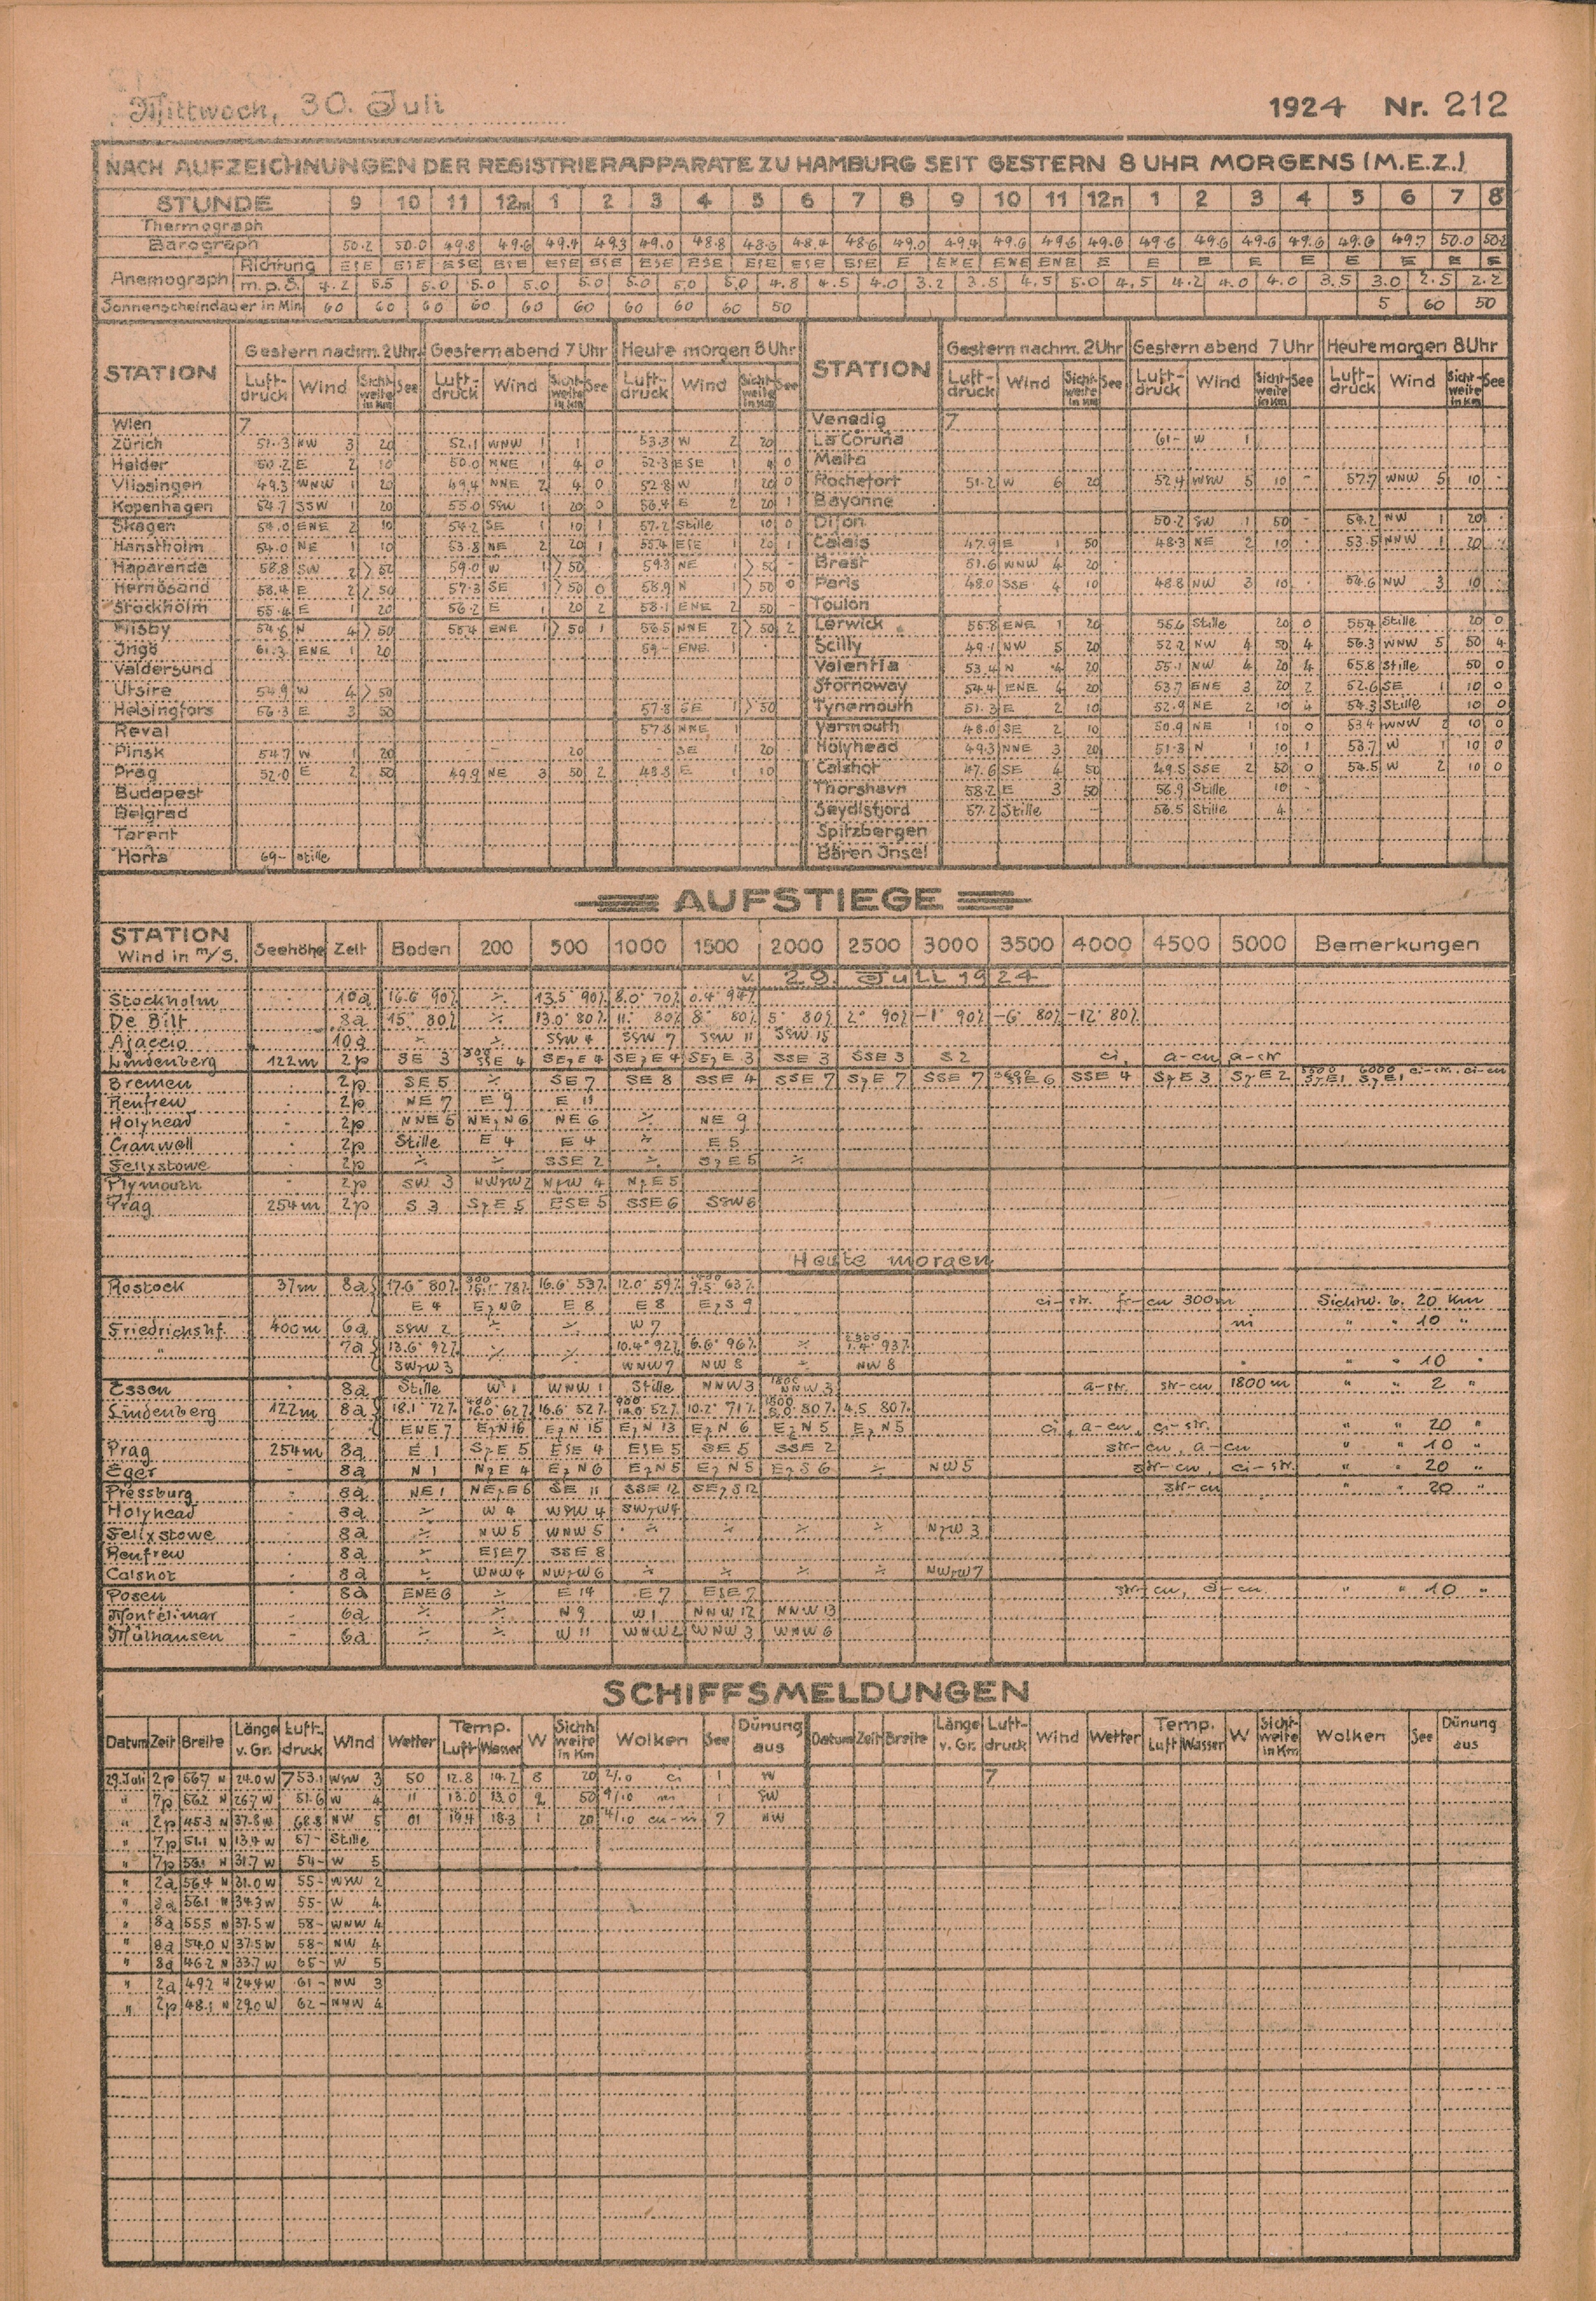 Mittwoch, 30. Juli
1924 Nr. 212
NACH AUFZEICHNUNGEN DER REGISTRIERAPPARATE ZU HAMBURG SEIT GESTERN 8 UHR MORGENS (M.E.Z.)
STUNDE 9 10 11 12m 1 2 3 4 5 6 7 8 9 10 11 12n 1 2 3 4 5 6 7 8
Thermograph
Barograph 50.2 50.0 49.8 49.6 49.4 49.3 49.0 48.8 48.6 48.4 48.6 49.0 49.4 49.6 49.6 49.6 49.6 49.6 49.6 49.6 49.6 49.7 50.0 50.2
Anemograph Richtung ESE ESE ESE ESE ESE ESE ESE ESE ESE ESE ESE E ENE ENE ENE E E E E E E E E E
m.p.S. 4.2 5.5 5.0 5.0 5.0 5.0 5.0 5.0 5.0 4.8 4.5 4.0 3.2 3.5 4.5 5.0 4.5 4.2 4.0 4.0 3.5 3.0 2.5 2.2
Sonnenscheindauer in Min. 60 60 60 60 60 60 60 60 60 50 5 60 50
STATION Gestern nachm. 2 Uhr Gestern abend 7 Uhr Heute morgen 8 Uhr STATION Gestern nachm. 2 Uhr Gestern abend 7 Uhr Heute morgen 8 Uhr
Luft-druck Wind Sicht-weite in Km See Luft-druck Wind Sicht-weite in Km See Luft-druck Wind Sicht-weite in Km See Luft-druck Wind Sicht-weite in Km See Luft-druck Wind Sicht-weite in Km See Luft-druck Wind Sicht-weite in Km See
Wien 7 Venedig 7
Zürich 51.3 NW 3 20 52.1 WNW 1 1 53.3 W 2 20 La Coruña 61- W 1
Helder 50.2 E 2 10 50.0 NNE 1 4 0 52.3 ESE 1 4 0 Malta
Vlissingen 49.3 WNW 1 20 49.4 NNE 2 4 0 52.8 W 1 20 0 Rochefort 51.2 W 6 20 52.4 WSW 5 10 - 57.7 WNW 5 10 -
Kopenhagen 54.7 SSW 1 20 55.0 SSW 1 20 0 56.4 E 2 20 1 Bayonne
Skagen 54.0 ENE 2 10 54.2 SE 1 10 1 57.2 Stille 10 0 Dijon 50.2 SW 1 50 - 54.2 NW 1 20 -
Hanstholm 54.0 NE 1 10 53.8 NE 2 20 1 55.4 ESE 1 20 1 Calais 47.9 E 1 50 48.3 NE 2 10 - 53.5 NNW 1 20
Haparanda 58.8 SW 2 >50 59.0 W 1 >50 59.3 NE 1 >50 - Brest 51.6 WNW 4 20
Hernösand 58.4 E 2 >50 57.3 SE 1 >50 0 58.9 N 1 >50 0 Paris 48.0 SSE 4 10 48.8 NW 3 10 - 54.6 NW 3 10
Stockholm 55.4 E 1 20 56.2 E 1 20 2 58.1 ENE 2 50 - Toulon
Wisby 54.6 N 4 >50 55.4 ENE 1 >50 1 56.5 NNE 2 >50 2 Lerwick 55.8 ENE 1 20 55.6 Stille 20 0 55.4 Stille 20 0
Ingö 61.3 ENE 1 20 59- ENE 1 Scilly 49.1 NW 5 20 52.2 NW 4 50 4 56.3 WNW 5 50 4
Valdersund Valentia 53.4 N 4 20 55.1 NW 4 20 4 55.8 Stille 50 0
Utsire 54.9 W 4 >50 Stornoway 54.4 ENE 4 20 53.7 ENE 3 20 2 52.6 SE 1 10 0
Helsingfors 56.3 E 3 50 57.8 SE 1 >50 Tynemouth 51.3 E 2 10 52.9 NE 2 10 4 54.3 Stille 10 0
Reval 57.8 NNE 1 Yarmouth 48.0 SE 2 10 50.9 NE 1 10 0 53.4 WNW 2 10 0
Pinsk 54.7 W 1 20 - - 20 - SE 1 20 Holyhead 49.3 NNE 3 20 51.3 N 1 10 1 53.7 W 1 10 0
Prag 52.0 E 2 50 49.9 NE 3 50 2 48.8 E 1 10 Calshot 47.6 SE 4 50 49.5 SSE 2 50 0 54.5 W 2 10 0
Budapest Thorshavn 58.2 E 3 50 56.9 Stille 10 -
Belgrad Seydisfjord 57.2 Stille 56.5 Stille 4 -
Tarent Spitzbergen
Horta 69- stille Bären Insel
AUFSTIEGE
STATION Wind in m/S. Seehöhe Zeit Boden 200 500 1000 1500 2000 2500 3000 3500 4000 4500 5000 Bemerkungen
v. 29. Juli 1924
Stockholm - 10a 16.6° 90% ⁒ 13.5° 90% 8.0° 70% 0.4° 94%
De Bilt 8a 15° 80% ⁒ 13.0° 80% 11° 80% 8° 80% 5° 80% 2° 90% -1° 90% -6° 80% -12° 80%
Ajaccio 10a ⁒ ⁒ SSW 4 SSW 7 SSW 11 SSW 15
Lindenberg 122m 2p SE 3 300 SSE 4 SEzE 4 SEzE 4 SEzE 3 SSE 3 SSE 3 S 2 ci, a-cu, a-str
Bremen - 2p SE 5 ⁒ SE 7 SE 8 SSE 4 SSE 7 SzE 7 SSE 7 SSE 6 SSE 4 SzE 3 SzE 2 5500 SzE1 6000 SzE1 ci-str. ci-cu
Renfrew - 2p NE 7 E 9 E 11
Holyhead - 2p NNE 5 NEzN6 NE 6 ⁒ NE 9
Cranwell - 2p Stille E 4 E 4 ⁒ E 5
Felixstowe - 2p ⁒ ⁒ SSE 2 ⁒ SzE 5 ⁒
Plymouth - 2p SW 3 NWzW2 NzW 4 NzE 5
Prag 254m 2p S 3 SzE 5 ESE 5 SSE 6 SSW 6
Heute morgen
Rostock 37m 8a 17.6° 80% 300 78% 16.6° 53% 12.0° 59% 9.5° 63%
E 4 EzN6 E 8 E 8 EzS 9 ci-str. fr-cu 300m Sichtw. b. 20 Km
Friedrichshf. 400m 6a SSW 2 ⁒ ⁒ W 7 ni " " 10 "
" 7a 13.6° 92% ⁒ ⁒ 10.4° 92% 6.6° 96% ⁒ 93%
SWzW 3 WNW 7 NW 8 ⁒ NW 8 " " " 10 "
Essen - 8a Stille W 1 WNW 1 Stille NNW 3 1800 NNW 3 a-str. str-cu 1800m " " 2 "
Lindenberg 122m 8a 18.1° 72% 16.0° 62% 16.6° 52% 14.0° 52% 10.2° 71% 1800 8.0° 80% 4.5 80%
ENE 7 EzN16 EzN 15 EzN 13 EzN 6 EzN 5 EzN 5 ci, a-cu, ci-str. " " 20 "
Prag 254m 8a E 1 SzE 5 ESE 4 ESE 5 SE 5 SSE 2 str-cu, a-cu " " 10 "
Eger - 8a N 1 NzE 4 EzN6 EzN5 EzN5 EzS 6 ⁒ NW 5 str-cu, ci-str. " " 20 "
Pressburg - 8a NE 1 NEzE6 SE 11 SSE 12 SEzS12 str-cu " " 20 "
Holyhead - 8a ⁒ W 4 WSW 4 SWzW4
Felixstowe - 8a ⁒ NW 5 WNW 5 ⁒ ⁒ ⁒ ⁒ NzW 3
Renfrew - 8a ⁒ ESE7 SSE 8
Calshot - 8a ⁒ WNW4 NWzW6 ⁒ ⁒ ⁒ ⁒ NWzW7
Posen - 8a ENE 6 ⁒ E 14 E 7 ESE 7 str-cu, a-cu. " " 10 "
Montélimar - 6a ⁒ ⁒ N 9 W 1 NNW 12 NNW 13
Mülhausen - 6a ⁒ ⁒ W 11 WNW2 WNW 3 WNW 6
SCHIFFSMELDUNGEN
Datum Zeit Breite Länge v. Gr. Luft-druck Wind Wetter Temp. Luft Wasser W Sicht-weite in Km Wolken See Dünung aus Datum Zeit Breite Länge v. Gr. Luft-druck Wind Wetter Temp. Luft Wasser W Sicht-weite in Km Wolken See Dünung aus
29. Juli 2p 56.7 N 24.0 W 753.1 WSW 3 50 12.8 14.2 8 20 2/10 ci 1 W 7
" 7p 56.2 N 26.7 W 51.6 W 4 11 13.0 13.0 2 50 9/10 ni 1 SW
" 2p 45.3 N 37.8 W 68.8 NW 5 01 19.4 18.3 1 20 4/10 cu-ni 7 NW
" 7p 51.1 N 13.4 W 57- Stille
" 7p 58.1 N 31.7 W 54- W 5
" 2a 56.4 N 31.0 W 55- WSW 2
" 8a 56.1 N 34.3 W 55- W 4
" 8a 55.5 N 37.5 W 58- WNW 4
" 8a 54.0 N 37.5 W 58- NW 4
" 8a 46.2 N 33.7 W 65- W 5
" 2a 49.2 N 24.4 W 61- NW 3
" 2p 48.1 N 29.0 W 62- NNW 4